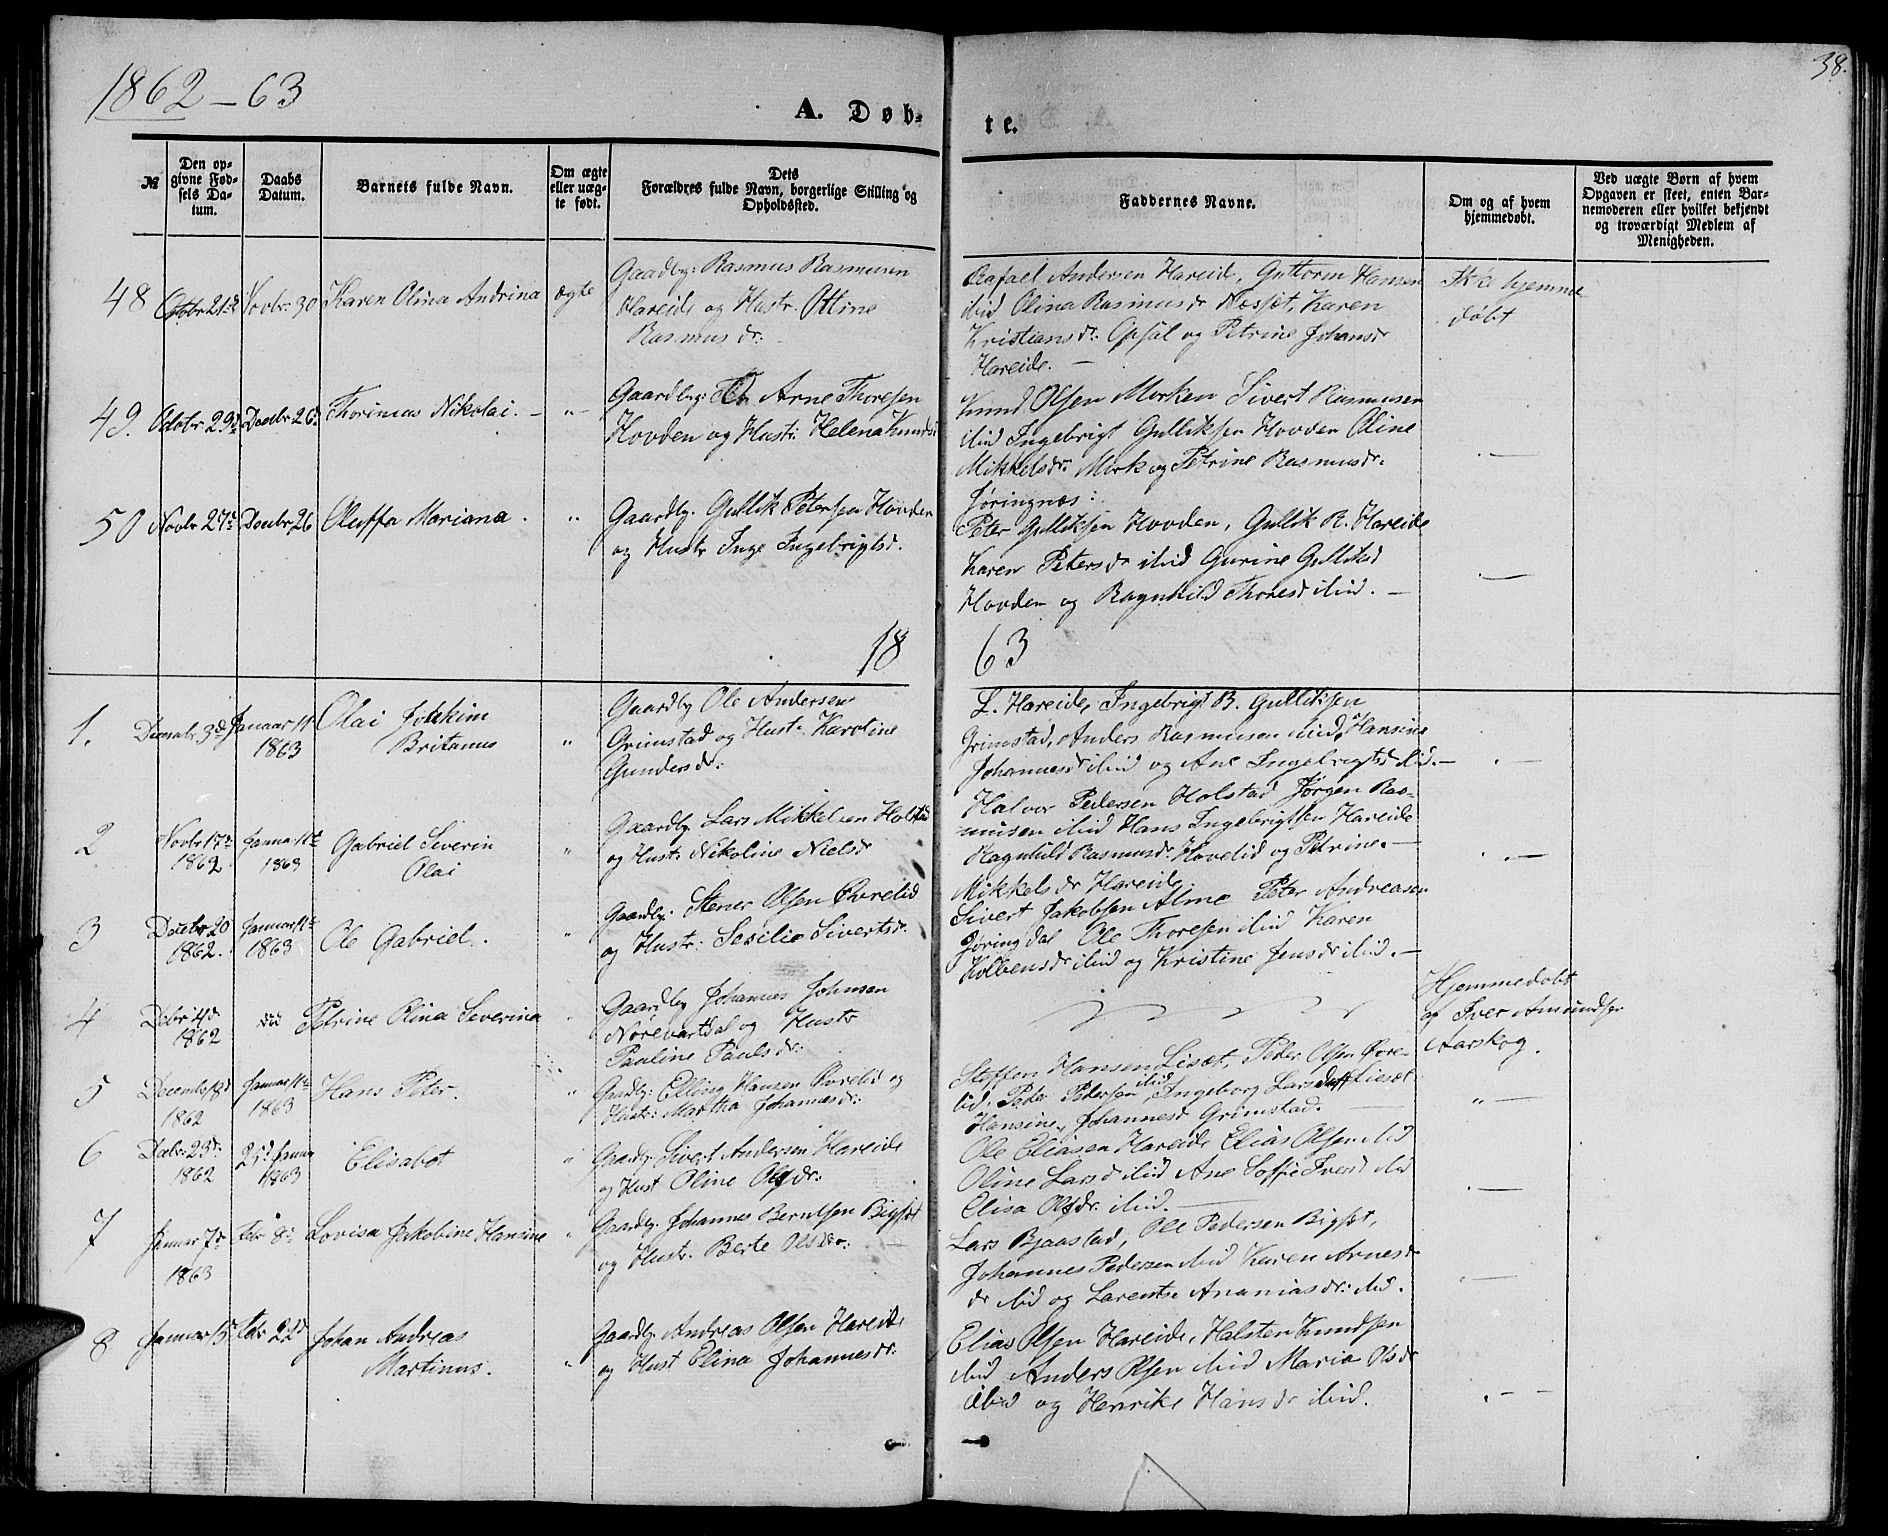 1862-63
38.
A. Døb-
te.
№
Den op-
givne Fød-
sels Da-
tum.
Daabs
Datum.
Barnets fulde Navn.
Om ægte
eller uæg-
te født.
Dets
Forældres fulde Navn, borgerlige Stilling og
Opholdssted.
Faddernes Navne.
Om og af hvem
hjemmedøbt.
Ved uægte Børn af hvem
Opgaven er skeet, enten Bar-
nemoderen eller hvilket bekjendt
og troværdigt Medlem af
Menigheden.
48 Octobr 21de Novbr: 30 Karen Olina Andrina ægte
Gaardbg: Rasmus Rasmusen
Hareide og Hustr. Ottine
Rasmusdr:
Rafael Andersen Hareide, Guttorm Hansen
ibid Olina Rasmusdr Nesset, Karen
Kristiansdr: Opsal og Petrine Johansdr
Hareide. —
Ikke hjemme
døbt
49. Octobr 29d Decbr 26d Thorinius Nikolai. — "
Gaardbg: Arne Thoresen
Hovden og Hustr: Helena Knudsd
Knud Olsen Morken Sivert Rasmusen
ibid Ingebrigt Gulliksen Hovden Oline
Mikkelsdr: Mork og Petrine Rasmusdr.
Jøringnæs:
50 Novbr 27d Decbr 26 Oluffa Mariana. "
Gaardbg. Gullik Petersen Hovden
og Hustr Inge Ingebrigtsd.
Peter Gulliksen Hovden, Gullik R. Hareide
Karen Petersdr ibid Gurine Gulliksd
Hovden og Ragnhild Thoresd ibid. —
18 63
1. Decmbr. 3d Januar 11
1863
Olai Joakim
Britanus "
Gaardbg Ole Andersen
Grimstad og Hust: Karoline
Gundersdr:
L. Hareide, Ingebrigt B. Gulliksen
Grimstad, Anders Rasmusen ibid, Hansine
Johannesd ibid og Ane Ingebrigtsd ibid. —
2 Novbr 17de
1862.
Januar 11te
1863
Gabriel Severin
Olai "
Gaardbg. Lars Mikkelsen Holstad
og Hustr: Nikoline Nielsd
Halvor Pedersen Holstad Jørgen Ras-
musen ibid Hans Ingebrigtsen Hareide
Ragnhild Rasmusdr: Hovelid og Petrine. —
Mikkelsdr Hareide.
3 Decbr 20
1862.
Januar 11te
1863
Ole Gabriel. "
Gaardbg: Stener Olsen Øvrelid
og Hustr: Sesilie Sivertsdr.
Sivert Jakobsen Alme Peter Andreasen
Jøringdal Ole Thoresen ibid Karen
Kolbensdr ibid og Kristine Jensdr ibid. —
4 Dcbr 4d
1862
Petrine Olina Severina
Gaardbg Johannes Johnsen
Norevartdal og Hustr
Pauline Paulsdr:
Hjemmedøbt
af Iver Amundsen
Aarskog.
5 Decembr 18d
1862
Januar 11te
1863
Hans Peter. "
Gaardbg: Ellias Hansen Øvrelid og
Hustr: Martha Johannesdr:
Steffen Hansen Liset, Peder Olsen Øvre-
lid, Peder Pedersen ibid, Ingeborg Larsdatt Liesæt
Hansine, Johannesd Grimstad. —
6 Decbr 23d
1862
25d Januar
1863
Elisabet "
Gaardbg: Sivert Andersen Hareide
og Hust Oline Olsdr:
Ole Eliasen Hareide Elias Olsen ibid
Oline Larsd ibid Ane Soffie Iversd ibid
Elisa Olsdr: ibid. —
7 Januar 7d
1863
Febr 8d Lovisa Jakobine Hansine "
Gaardbg. Johannes Berntsen Bigset
og Hustr. Berte Olsdr:
Lars Bjaastad, Ole Pedersen Bigset,
Johannes Pedersen ibid Karen Arnesdr
dr ibid og Larentse Ananiasdr: ibid.
8 Januar 15d Febr 22d Johan Andreas
Martinus. "
Gaardbg. Andreas Olsen Hareide
og Hust Elina Johannesdr:
Elias Olsen Hareide, Halsten Knudsen
ibid Anders Olsen ibid Maria Olsdr
ibid og Henrike Hansdr ibid.